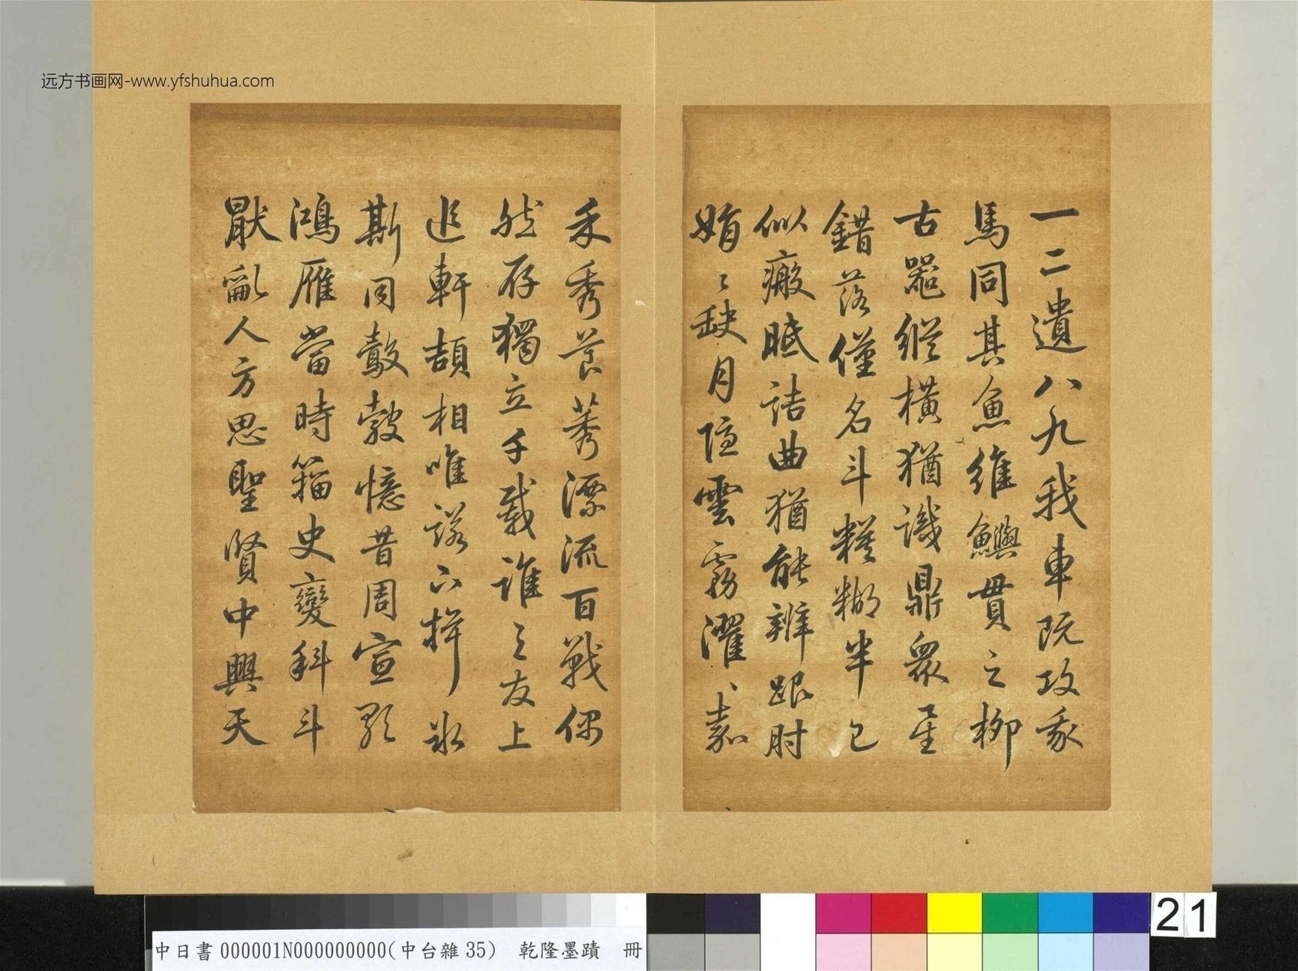 一二遺八九我車既攻我
馬同其魚維鱮貫之柳
古器縱橫猶識鼎眾星
錯落僅名斗糢糊半已
似瘢胝詰曲猶能辨跟肘
娟〻缺月隱雲霧濯〻嘉
禾秀莨莠漂流百戰偶
然存獨立千載誰与友上
追軒頡相唯諾下揖冰
斯同鷇㝅憶昔周宣歌
鴻雁當時籀史變科斗
猒亂人方思聖賢中興天
远方书画网-www.yfshuhua.com
中日書 000001N000000000(中台雜 35) 乾隆墨蹟 冊
21